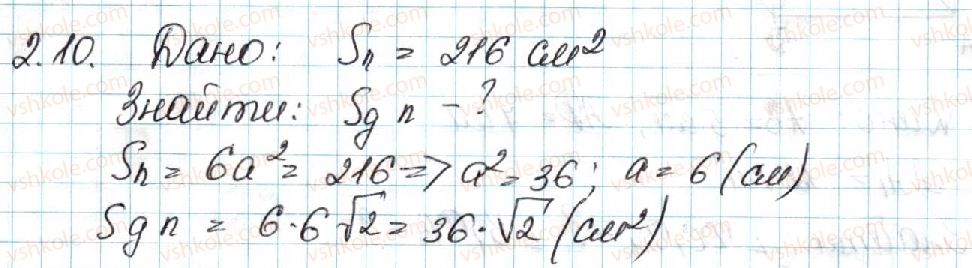 2.10. Дано: Sп = 216 см²
Знайти: Sg п - ?
Sп = 6a² = 216 => a² = 36; a = 6 (см)
Sg п = 6·6√2 = 36·√2 (см²)